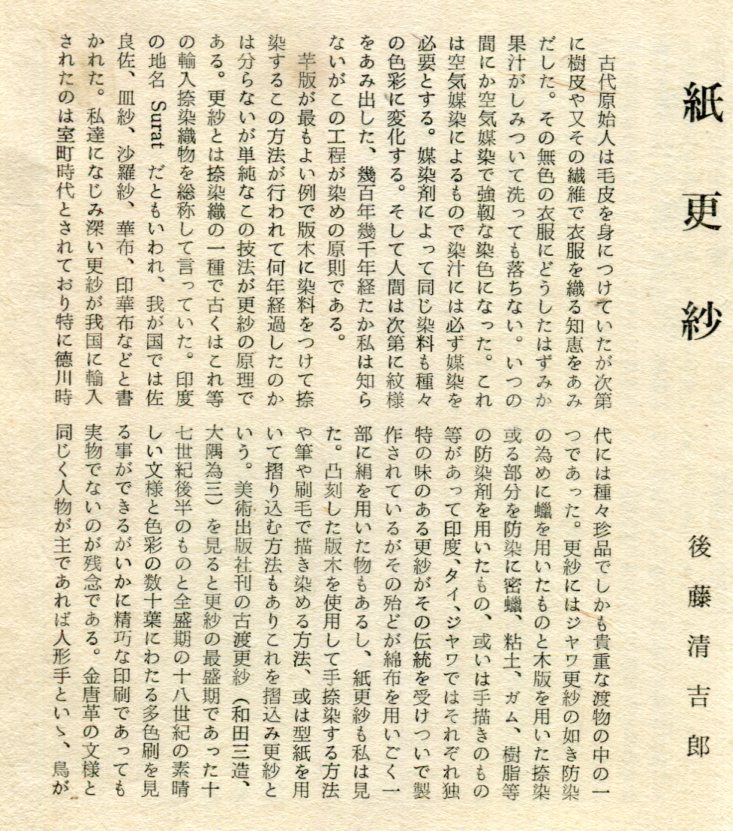 紙更紗
後藤清吉郎
古代原始人は毛皮を身につけていたが次第
に樹皮や又その繊維で衣服を織る知恵をあみ
だした。その無色の衣服にどうしたはずみか
果汁がしみついて洗っても落ちない。いつの
間にか空気媒染で強靱な染色になった。これ
は空気媒染によるもので染汁には必ず媒染を
必要とする。媒染剤によって同じ染料も種々
の色彩に変化する。そして人間は次第に紋様
をあみ出した、幾百年幾千年経たか私は知ら
ないがこの工程が染めの原則である。
芋版が最もよい例で版木に染料をつけて捺
染するこの方法が行われて何年経過したのか
は分らないが単純なこの技法が更紗の原理で
ある。更紗とは捺染織の一種で古くはこれ等
の輸入捺染織物を総称して言っていた。印度
の地名 Surat だともいわれ、我が国では佐
良佐、皿紗、沙羅紗、華布、印華布などと書
かれた。私達になじみ深い更紗が我国に輸入
されたのは室町時代とされており特に徳川時
代には種々珍品でしかも貴重な渡物の中の一
つであった。更紗にはジャワ更紗の如き防染
の為めに蠟を用いたものと木版を用いた捺染
或る部分を防染に密蠟、粘土、ガム、樹脂等
の防染剤を用いたもの、或いは手描きのもの
等があって印度、タイ、ジヤワではそれぞれ独
特の味のある更紗がその伝統を受けついで製
作されているがその殆どが綿布を用いごく一
部に絹を用いた物もあるし、紙更紗も私は見
た。凸刻した版木を使用して手捺染する方法
や筆や刷毛で描き染める方法、或は型紙を用
いて摺り込む方法もありこれを摺込み更紗と
いう。美術出版社刊の古渡更紗（和田三造、
大隅為三）を見ると更紗の最盛期であった十
七世紀後半のものと全盛期の十八世紀の素晴
しい文様と色彩の数十葉にわたる多色刷を見
る事ができるがいかに精巧な印刷であっても
実物でないのが残念である。金唐革の文様と
同じく人物が主であれば人形手といゝ、鳥が